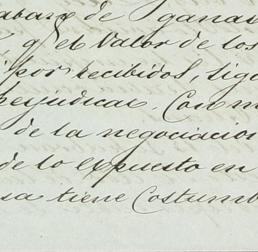 de Iganas
q el Valor de los
por recibidos, sigu
perjudicar. Comm
de la negociacion
de lo expuesto en
sa tiene Costumb